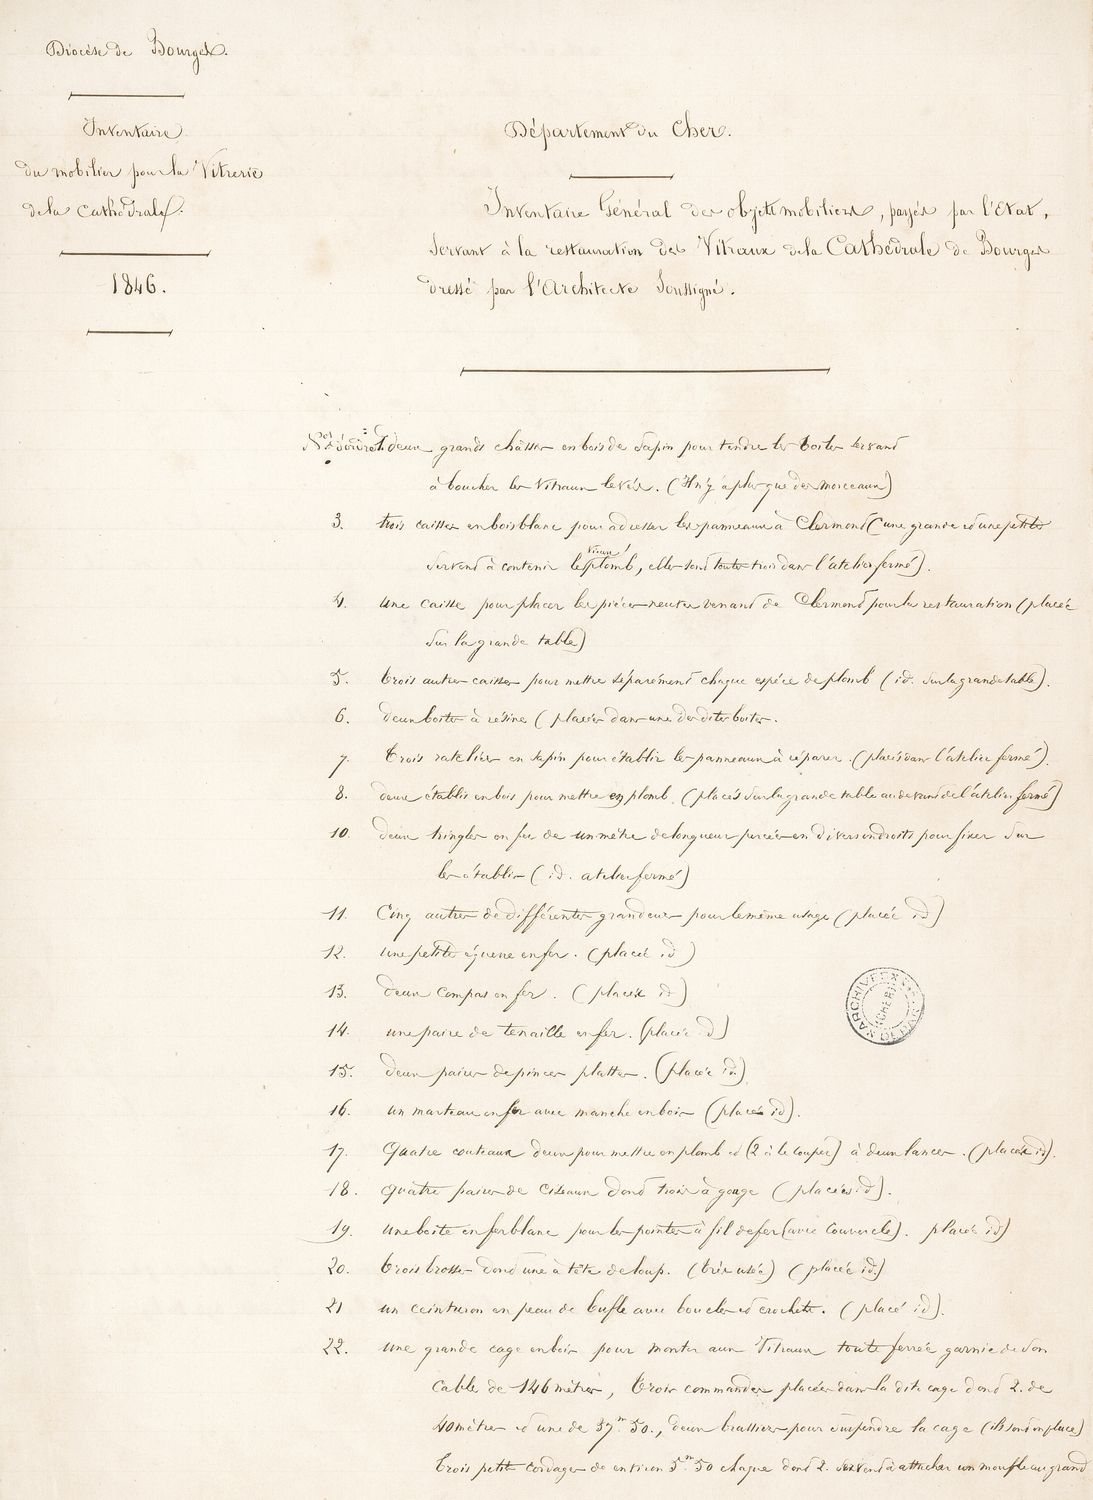 Diocèse de Bourges.
Inventaire
du mobilier pour la Vitrerie
de la Cathédrale.
1846.
Département du Cher.
Inventaire Général des objets mobiliers, payés par l'Etat,
Servant à la restauration des Vitraux de la Cathédrale de Bourges
dressé par l'Architecte Soussigné.
Nos d'ordre 1. deux grands châssis en bois de Sapin pour tendre les toiles servant
à boucher les Vitraux levés. (Il n'y a plus que des morceaux)
3. trois caisses en bois blanc pour adresser les panneaux à Clermond (une grande et une petite
servend à contenir le vieux plomb, elles sond toutes trois dans l'atelier fermé).
4. une caisse pour placer les pièces neuves venand de Clermond pour la restauration (placée
sur la grande table)
5. trois autres caisses pour mettre séparémend chaque espèce de plomb (id. sur la grande table).
6. deux boites à résine (placées dans une des dites boites.
7. trois rateliers en sapin pour établir les panneaux à réparer. (placés dans l'atelier fermé).
8. deux établis en bois pour mettre en plomb. (placés sur la grande table au devand de l'atelier fermé)
10. deux tringles en fer de un mètre de longueur percées en divers endroits pour fixer sur
les établis (id. atelier fermé)
11. Cinq autres de différentes grandeurs pour le même usage (placée id)
12. une petite équerre en fer. (placée id)
13. deux compas en fer. (placés id)
14. une paire de tenaille en fer. (placée id)
15. deux paires de pinces plattes. (placée id)
16. un marteau en fer avec manche en bois (placée id).
17. Quatre couteaux deux pour mettre en plomb et (2 à le couper) à deux lances. (placés id).
18. quatre paires de ciseaux dond trois à gouge (placées id).
19. une boite en fer blanc pour les pointes à fil de fer (avec couvercle). placée id)
20. trois brosses dond une à tête de loup. (très usée) (placée id)
21 un ceinturon en peau de bufle avec boucles et crochets. (placé id).
22. une grande cage en bois pour monter aux Vitraux toute ferrée garnie de son
cable de 146 mètres, trois commandes placées dans la dite cage dond 2. de
40 mètres et une de 37.m 50., deux brassières pour suspendre la cage (ils sont en place)
trois petits cordages de environ 5.m 50 chaque dond 2. servend à attacher un moufle au grand
ARCHIVES
(CHER)